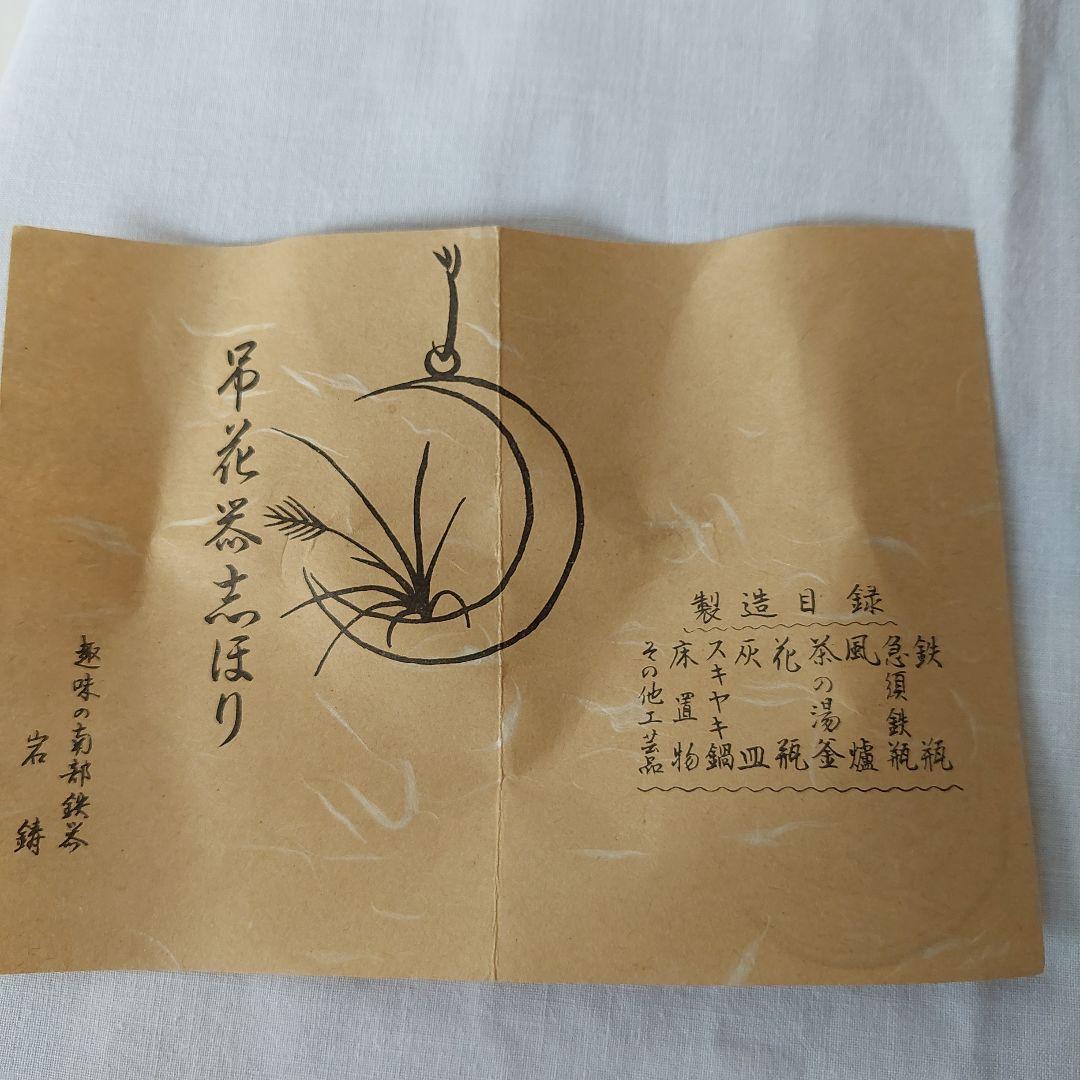 吊花器志ほり
趣味の南部鉄器
岩鋳
製造目録
鉄瓶
急須鉄瓶
風爐
茶の湯釜
花瓶
灰皿
スキヤキ鍋
床置物
その他工芸品